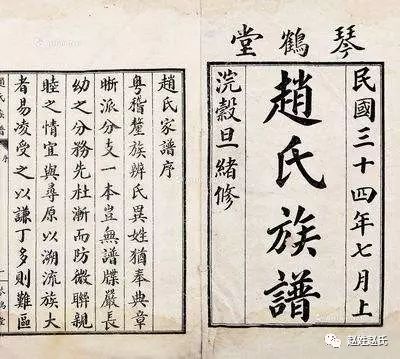 琴鶴堂
民國三十四年七月上
趙氏族譜
浣穀旦緒修
趙氏家譜序
粤稽釐族辨氏異姓猶奉典章
晰派分支一本豈無譜牒嚴長
幼之分務先杜漸而防微聯親
睦之情宜與尋原以溯流族大
者易凌受之以謙丁多則難區
趙氏族譜
序
一
赵姓赵氏